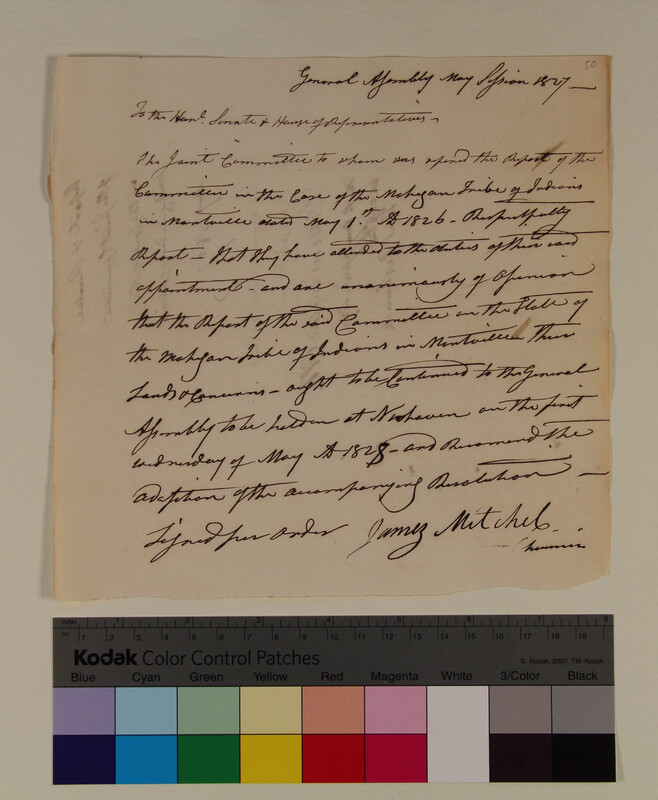 50
General Assembly May Session 1827 —
To the Hon.l Senate & House of Representatives –
The Joint Committee to whom was refered the Report of the
Committee in the Case of the Mohegan Tribe of Indians
in Montville dated May 1.st AD 1826 – Respectfully
Report — that they have attended to the duties of their said
appointment – and are unanimously of Opinion
that the Report of the said Committee on the State of
the Mohegan Tribe of Indians in Montville their
Lands & Concerns – ought to be Continued to the General
Assembly to be holden at Newhaven on the first
wednesday of May AD 1828 – and Recomend the
adoption of the accompanying Resolution —
Signed per order James Mitchel
Chairmn
inches 1 2 3 4 5 6 7 8
cm 1 2 3 4 5 6 7 8 9 10 11 12 13 14 15 16 17 18 19
Kodak Color Control Patches © Kodak, 2007 TM: Kodak
Blue Cyan Green Yellow Red Magenta White 3/Color Black